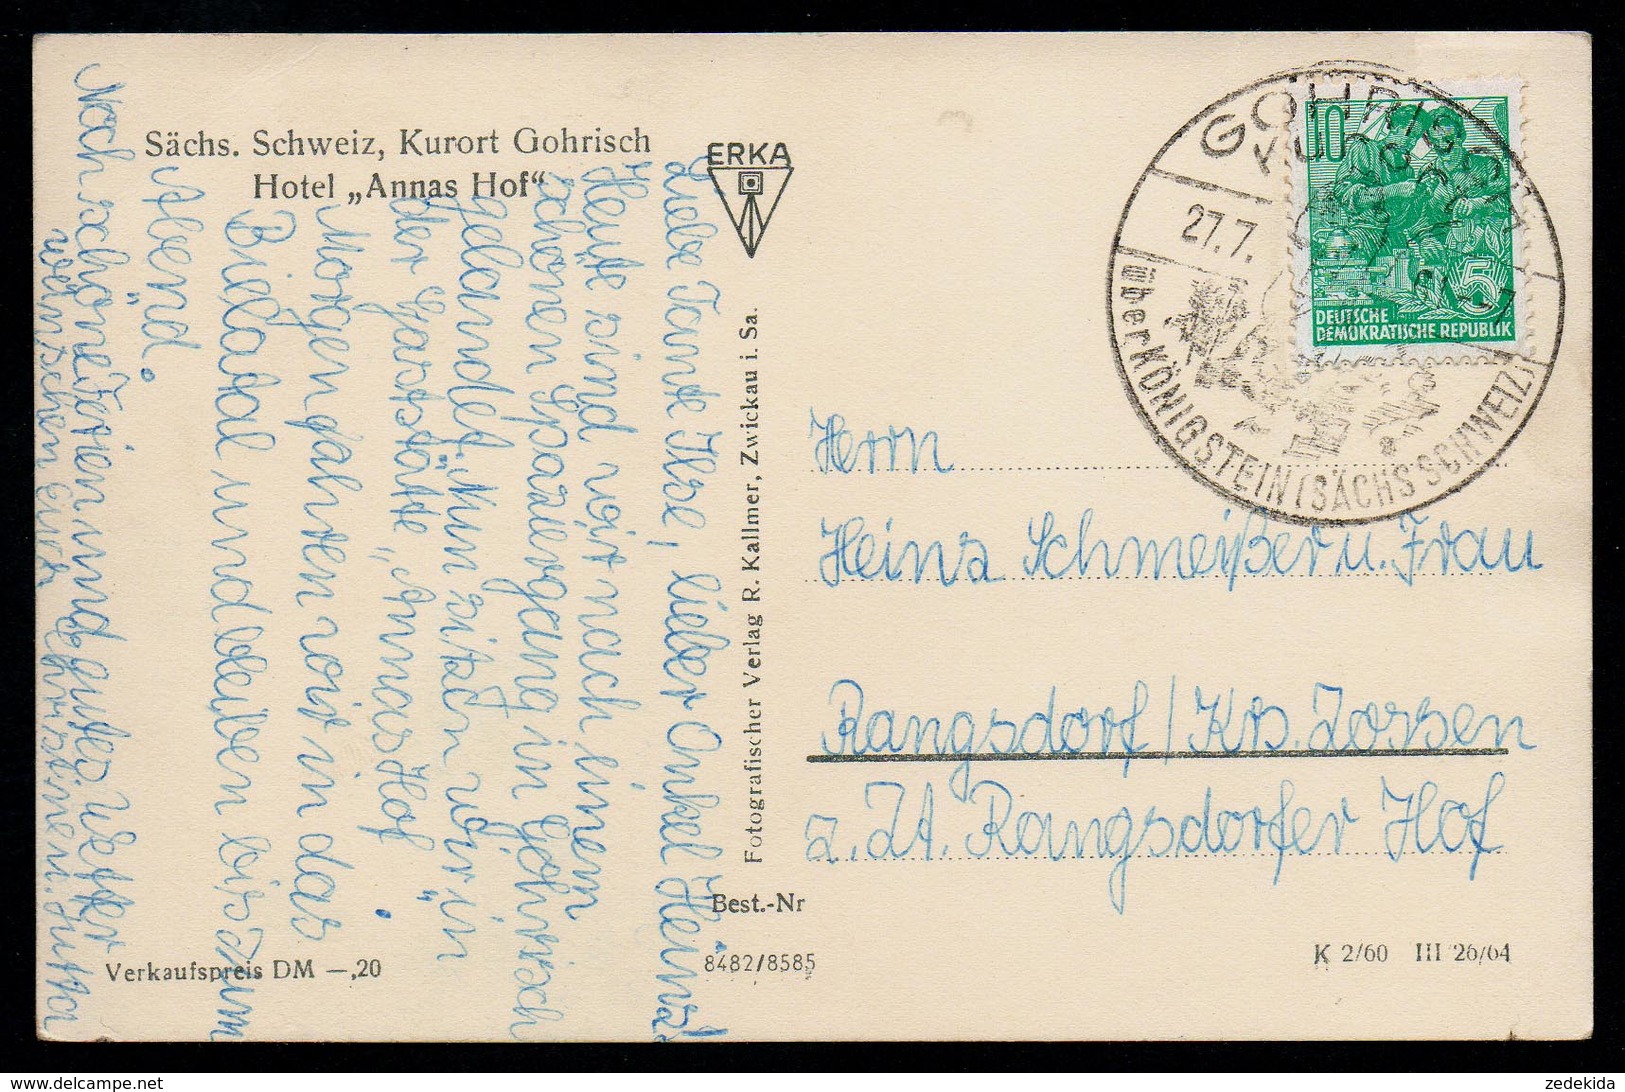 Sächs. Schweiz, Kurort Gohrisch
Hotel „Annas Hof"
ERKA
Liebe Tante Ilse, lieber Onkel Heinz!
Heute sind wir nach einem
schönen Spaziergang in Gohrisch
gelandet. Nun sitzen wir in
der Gaststätte „Annas Hof".
Morgen fahren wir in das
Bielatal und bleiben bis zum
Abend.
Noch schöne Ferien und gutes Wetter
wünschen Euch Christine u. Jutta
Fotografischer Verlag R. Kallmer, Zwickau i. Sa.
Best.-Nr
8482/8585
Verkaufspreis DM —,20
GOHRISCH
KURORT
27.7.
über KÖNIGSTEIN (SÄCHS SCHWEIZ)
10
5
DEUTSCHE
DEMOKRATISCHE REPUBLIK
Herrn
Heinz Schmeißer u. Frau
Rangsdorf / Krs. Zossen
z. Zt. Rangsdorfer Hof
K 2/60 III 26/64
zedekida
www.delcampe.net